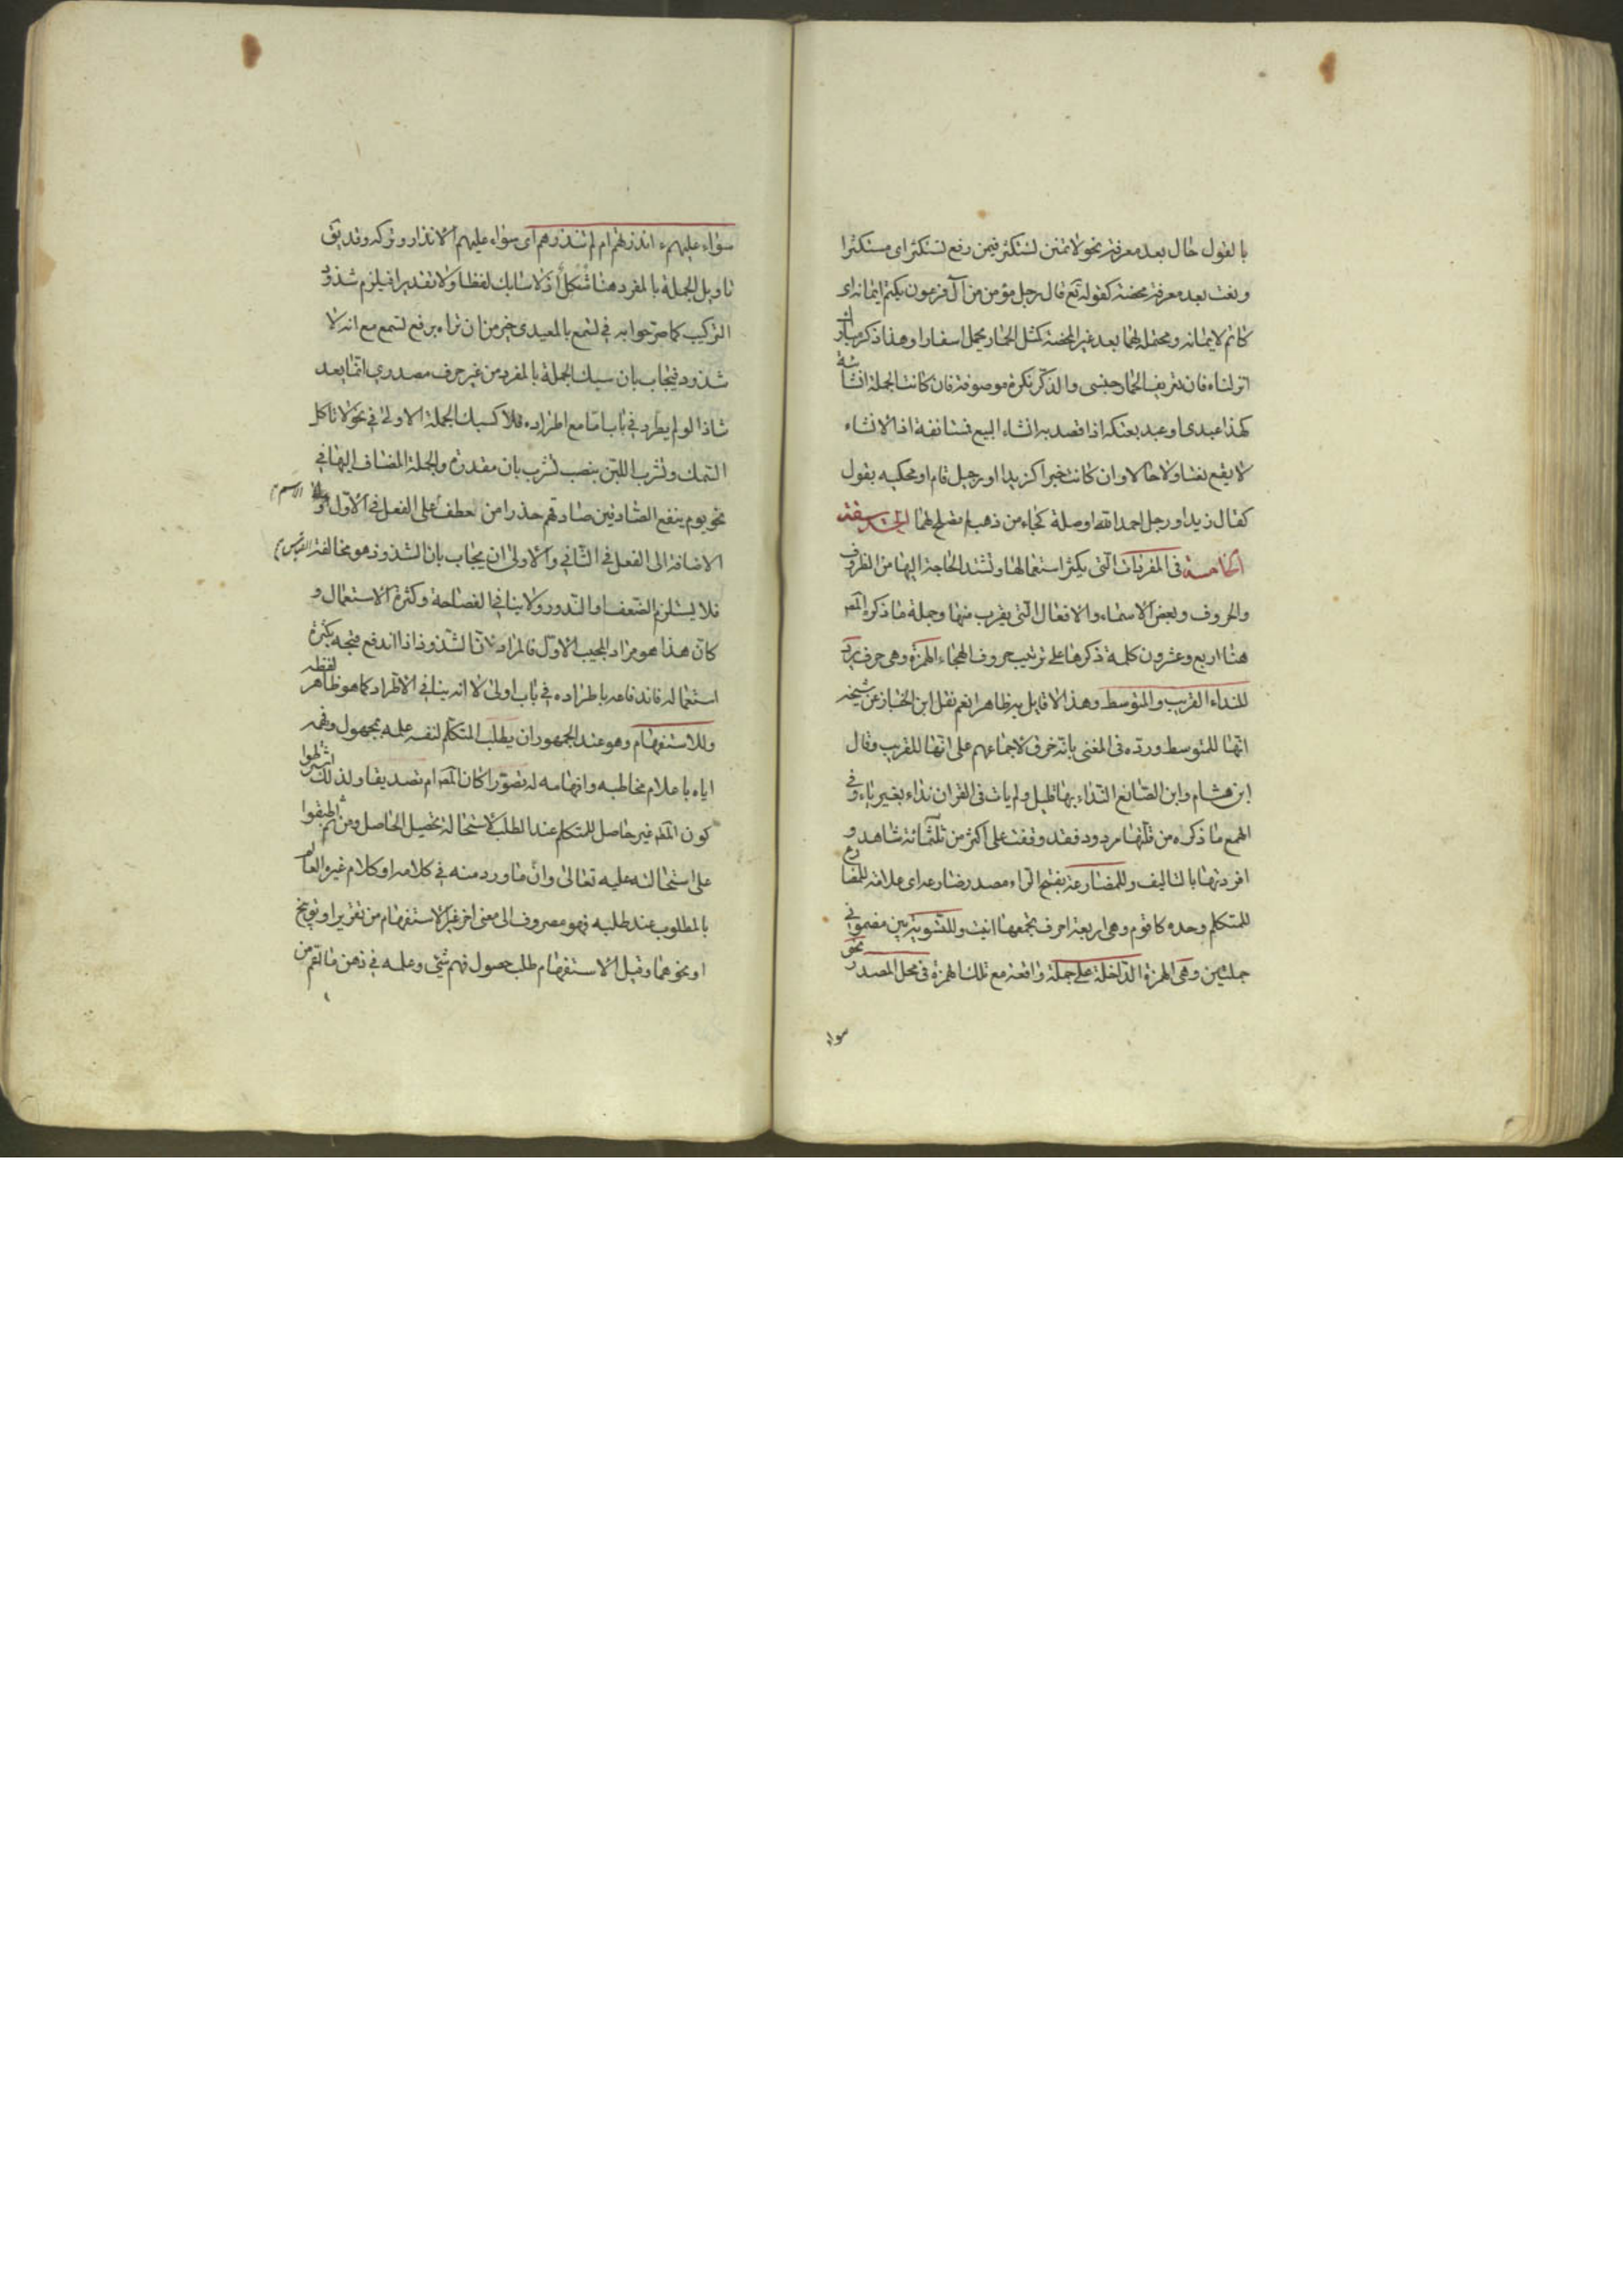 بالقول حال بعد معرفة نحو لا تمنن تستكثر فيمن رفع تستكثر اى مستكثرا
ونعت بعد معرفة محضة كقوله تع قال رجل مؤمن من آل فرعون يكتم ايمانه اى
كاتم لايمانه ومحتمل لهما بعد غير المحضة كمثل الحمار يحمل اسفارا وهذا ذكر مبارك
انزلناه فان تعريف الحمار جنسى والذكر نكرة موصوفة فان كانت الجملة انشائية
كهذا عبدى او عبد بعتكه اذا قصد به انشاء البيع فمستانفة اذ الانشاء
لا يقع نعتا ولا حالا وان كانت خبرا كزيد او رجل قام او محكيه بقول
كقال زيد او رجل احمد الله او صلة كجاء من ذهب لم تصلح لهما
الخامسة فى المفردات التى يكثر استعمالها وتشتد الحاجة اليها من الظروف
والحروف وبعض الاسماء والافعال التى يقرب منها وجملة ما ذكره المصـ
هنا اربع وعشرون كلمة ذكرها على ترتيب حروف الهجاء الهمزة وهى حرف يرد
للنداء القريب والمتوسط وهذا لا قايل به ظاهرا نعم نقل ابن الخباز عن شيخه
انها للمتوسط ورده فى المغنى بانه خرق لاجماعهم على انها للقريب وقال
ابن هشام وابن الصايغ النداء بها قليل ولم يات فى القران نداء بغير ياء وفى
الهمع ما ذكره من قلتها مردود فقد وقفت على اكثر من ثلثمائة شاهد و
افردتها بالتاليف وللمضارعة بفتح الراء مصدر ضارعه اى علامة للمضارع
للمتكلم وحده كاقوم وهى اربعة احرف يجمعها انيت وللتسوية بين مضمونى
جملتين وهى الهمزة الداخلة على جملة واقعة مع تلك الهمزة فى محل المصدر نحو
سواء
سواء عليهم ءانذرتهم ام لم تنذرهم اى سواء عليهم الانذار وتركه وقد يق
تاويل الجملة بالمفرد هنا مشكل اذ لا سابك لفظا ولا تقديرا فيلزم شذوذ
التركيب كما صرحوا به فى تسمع بالمعيدى خير من ان تراه برفع تسمع مع انه لا
شذوذ فيجاب بان سبك الجملة بالمفرد من غير حرف مصدرى انما يعد
شاذا لو لم يطرد فى باب اما مع اطراده فلا كسبك الجملة الاولى فى نحو لا تاكل
السمك وتشرب اللبن بنصب تشرب بان مقدرة والجملة المضاف اليها فى
نحو يوم ينفع الصادقين صدقهم حذرا من عطف الاسم على الفعل فى الاول و
الاضافة الى الفعل فى الثانى والاولى ان يجاب بان الشذوذ هو مخالفة القياس
فلا يستلزم الضعف والندور ولا ينافى الفصاحة وكثرة الاستعمال و
كان هذا هو مراد المجيب الاول فالمراد لانا الشذوذ اذا اندفع قبحه بكثرة
استعماله فاندفاعه باطراده فى باب اولى لا انه ينافى الاطراد كما هو ظاهر لفظه
وللاستفهام وهو عند الجمهور ان يطلب المتكلم لنفسه علمه بمجهول وفهمه
اياه باعلام مخاطبه وافهامه له تصورا كان ام تصديقا ولذلك اشترطوا
كون غير حاصل للمتكلم عند الطلب لاستحالة تحصيل الحاصل ومن ثم اطبقوا
على استحالته عليه تعالى وان ما ورد منه فى كلامه او كلام غيره العالم
بالمطلوب عند طلبه فهو مصروف الى معنى اخر غير الاستفهام من تقرير او توبيخ
او نحوهما وقيل الاستفهام طلب حصول فهم شئ وعلمه فى ذهن ما اعم من